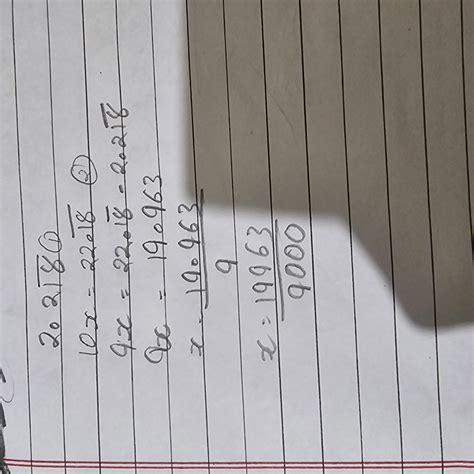 2.02\overline{18} ①
10x = 22.0\overline{18} ②
9x = 22.0\overline{18} - 2.02\overline{18}
9x = 19.963
x = 19.963 / 9
x = 19963 / 9000